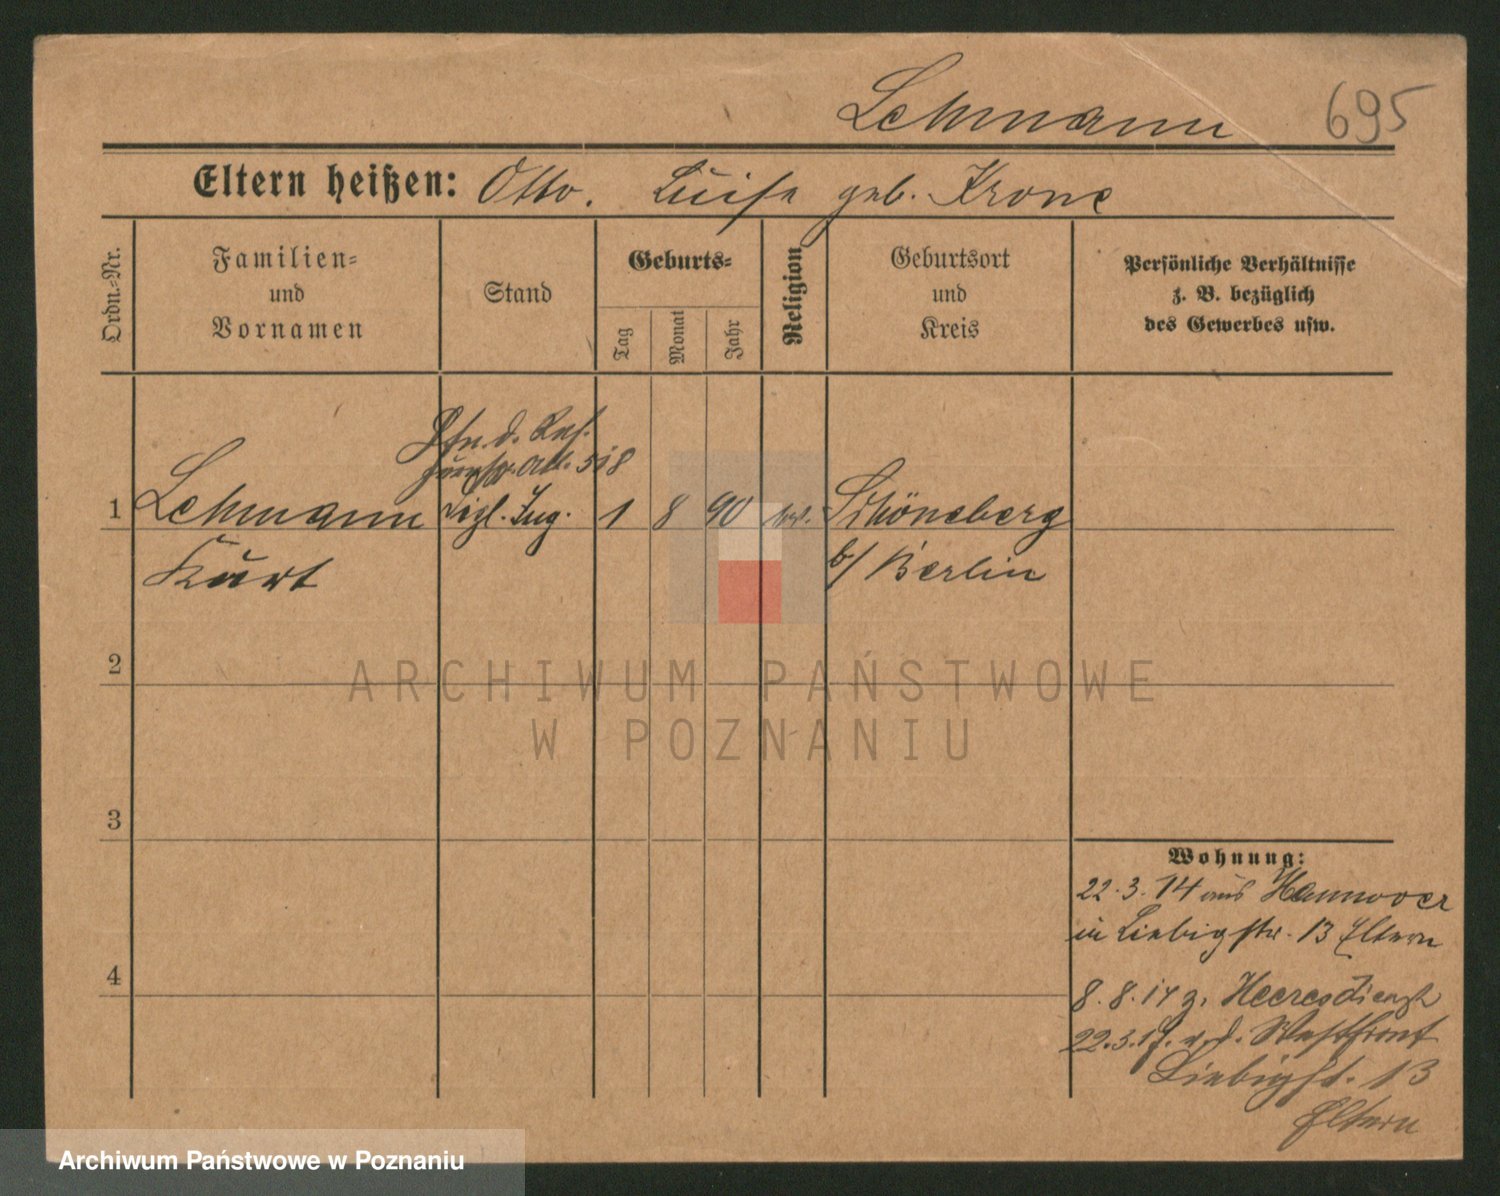 Lehmann 695
Eltern heißen: Otto. Luise geb. Krone
Ordn.-Nr.
Familien-
und
Vornamen
Stand
Geburts-
Tag
Monat
Jahr
Religion
Geburtsort
und
Kreis
Persönliche Verhältnisse
z. B. bezüglich
des Gewerbes usw.
Ltn. d. Res.
Abt. 518
1 Lehmann Dipl. Ing. 1 8 90 ev. Schöneberg
Kurt b/ Berlin
2
ARCHIWUM PAŃSTWOWE
W POZNANIU
3
4
Wohnung:
22.3.14 aus Hannover
in Liebigstr. 13 Eltern
8.8.14 z. Heeresdienst
22.3.17. v. d. Westfront
Liebigst. 13
Eltern
Archiwum Państwowe w Poznaniu